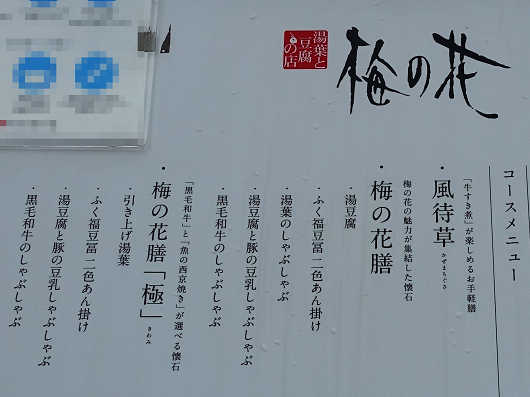 梅の花
湯葉と
豆腐
の店
コースメニュー
「牛すき煮」が楽しめるお手軽膳
・風待草 かぜまちぐさ
梅の花の魅力が集結した懐石
・梅の花膳
・湯豆腐
・ふく福豆冨 二色あん掛け
・湯葉のしゃぶしゃぶ
・湯豆腐と豚の豆乳しゃぶしゃぶ
・黒毛和牛のしゃぶしゃぶ
「黒毛和牛」と「魚の西京焼き」が選べる懐石
・梅の花膳「極」 きわみ
・引き上げ湯葉
・ふく福豆冨 二色あん掛け
・湯豆腐と豚の豆乳しゃぶしゃぶ
・黒毛和牛のしゃぶしゃぶ